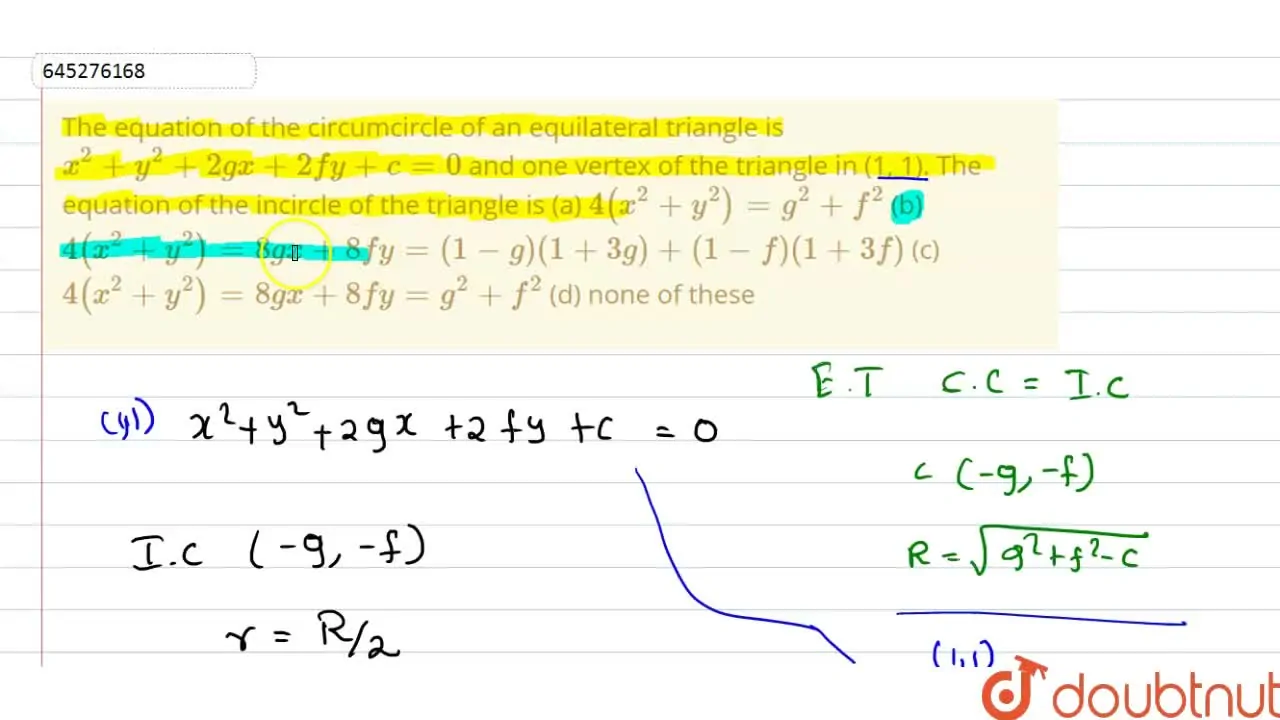 645276168
The equation of the circumcircle of an equilateral triangle is
x² + y² + 2gx + 2fy + c = 0 and one vertex of the triangle in (1, 1). The
equation of the incircle of the triangle is (a) 4(x² + y²) = g² + f² (b)
4(x² + y²) = 8gx + 8fy = (1 − g)(1 + 3g) + (1 − f)(1 + 3f) (c)
4(x² + y²) = 8gx + 8fy = g² + f² (d) none of these
E.T C.C = I.C
x²+y²+2gx +2fy +c = 0
c (-g, -f)
I.C (-g, -f)
R = √g²+f²-c
r = R/2
(1,1)
doubtnut